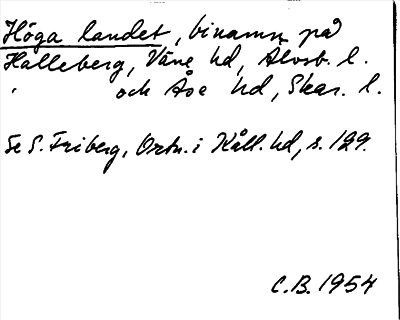 Höga landet, binamn på
Halleberg, Väne hd, Älvsb. l.
och Åse hd, Skar. l.
Se S. Friberg, Ortn. i Kåll. hd, s. 129.
C.B. 1954